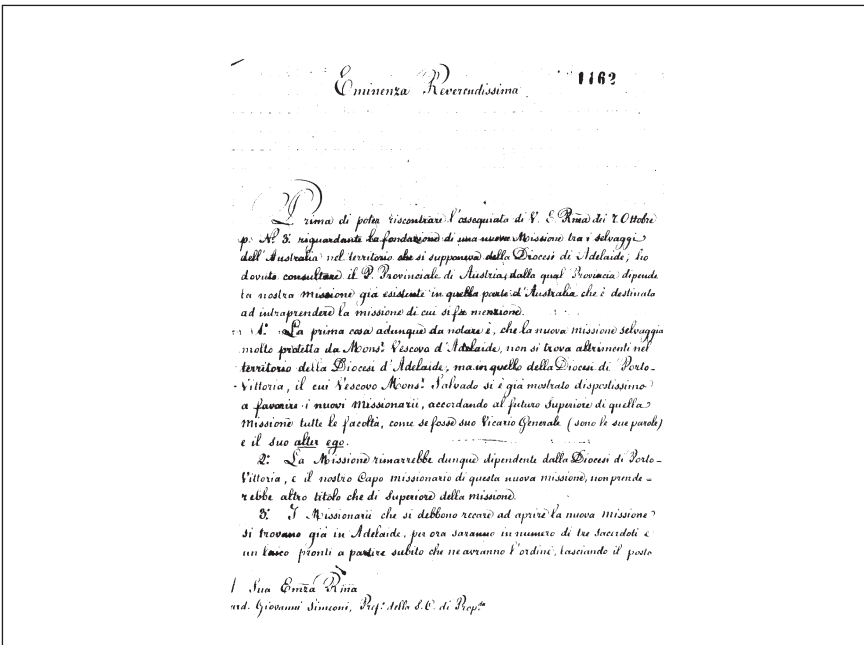 1162
Eminenza Reverendissima
Prima di poter riscontrare l'ossequiata di V. E. Rma dei 7 Ottobre
p. Nº 3. riguardante la fondazione di una nuova Missione tra i selvaggi
dell'Australia nel territorio che si supponeva della Diocesi di Adelaide, ho
dovuto consultare il P. Provinciale di Austria, dalla qual Provincia dipende
la nostra missione già esistente in quella parte d'Australia che è destinata
ad intraprendere la missione di cui si fa menzione.
1º La prima cosa adunque da notare è, che la nuova missione selvaggia
molto protetta da Monsr Vescovo d'Adelaide, non si trova altrimenti nel
territorio della Diocesi d'Adelaide, ma in quello della Diocesi di Porto-
Vittoria, il cui Vescovo Monsr Salvado si è già mostrato dispostissimo
a favorire i nuovi Missionarii, accordando al futuro Superiore di quella
Missione tutte le facoltà, come se fosse suo Vicario Generale (sono le sue parole)
e il suo alter ego.
2º La Missione rimarrebbe dunque dipendente dalla Diocesi di Porto-
Vittoria, e il nostro Capo missionario di questa nuova missione, non prende-
rebbe altro titolo che di Superiore della missione.
3º I Missionarii che si debbono recare ad aprire la nuova missione
si trovano già in Adelaide, per ora saranno in numero di tre sacerdoti e
un laico pronti a partire subito che ne avranno l'ordine, lasciando il posto
Sua Emza Rma
ard. Giovanni Simeoni, Prefº della S. C. di Propda